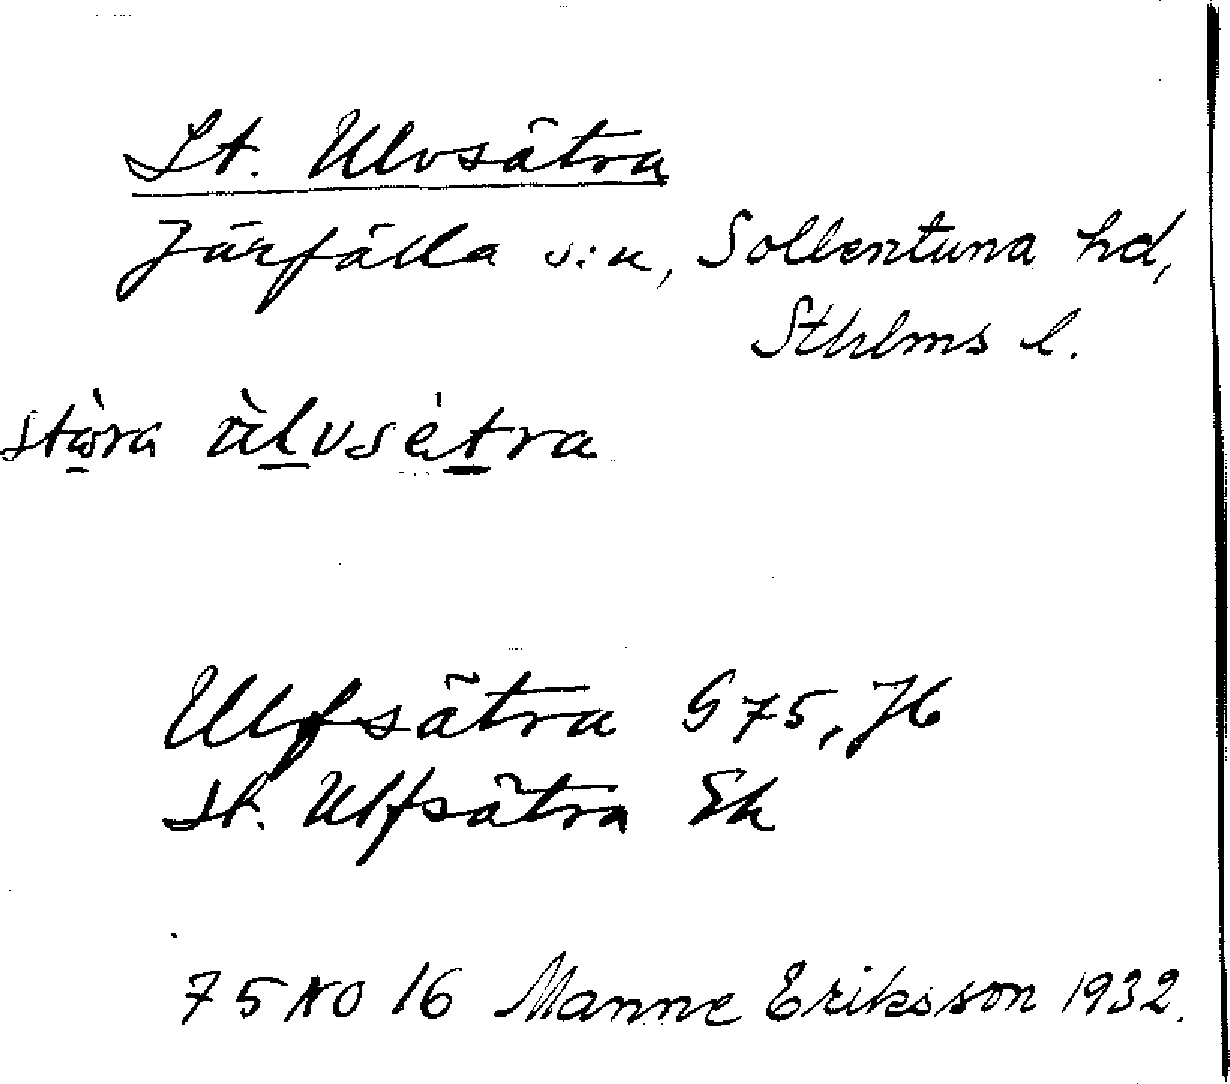 St. Ulvsätra
Järfälla s:n, Sollentuna hd,
Sthlms l.
stòra ùlvsétra
Ulfsätra G 75, J6
St. Ulfsätra Ek
75 NO 16 Manne Eriksson 1932.